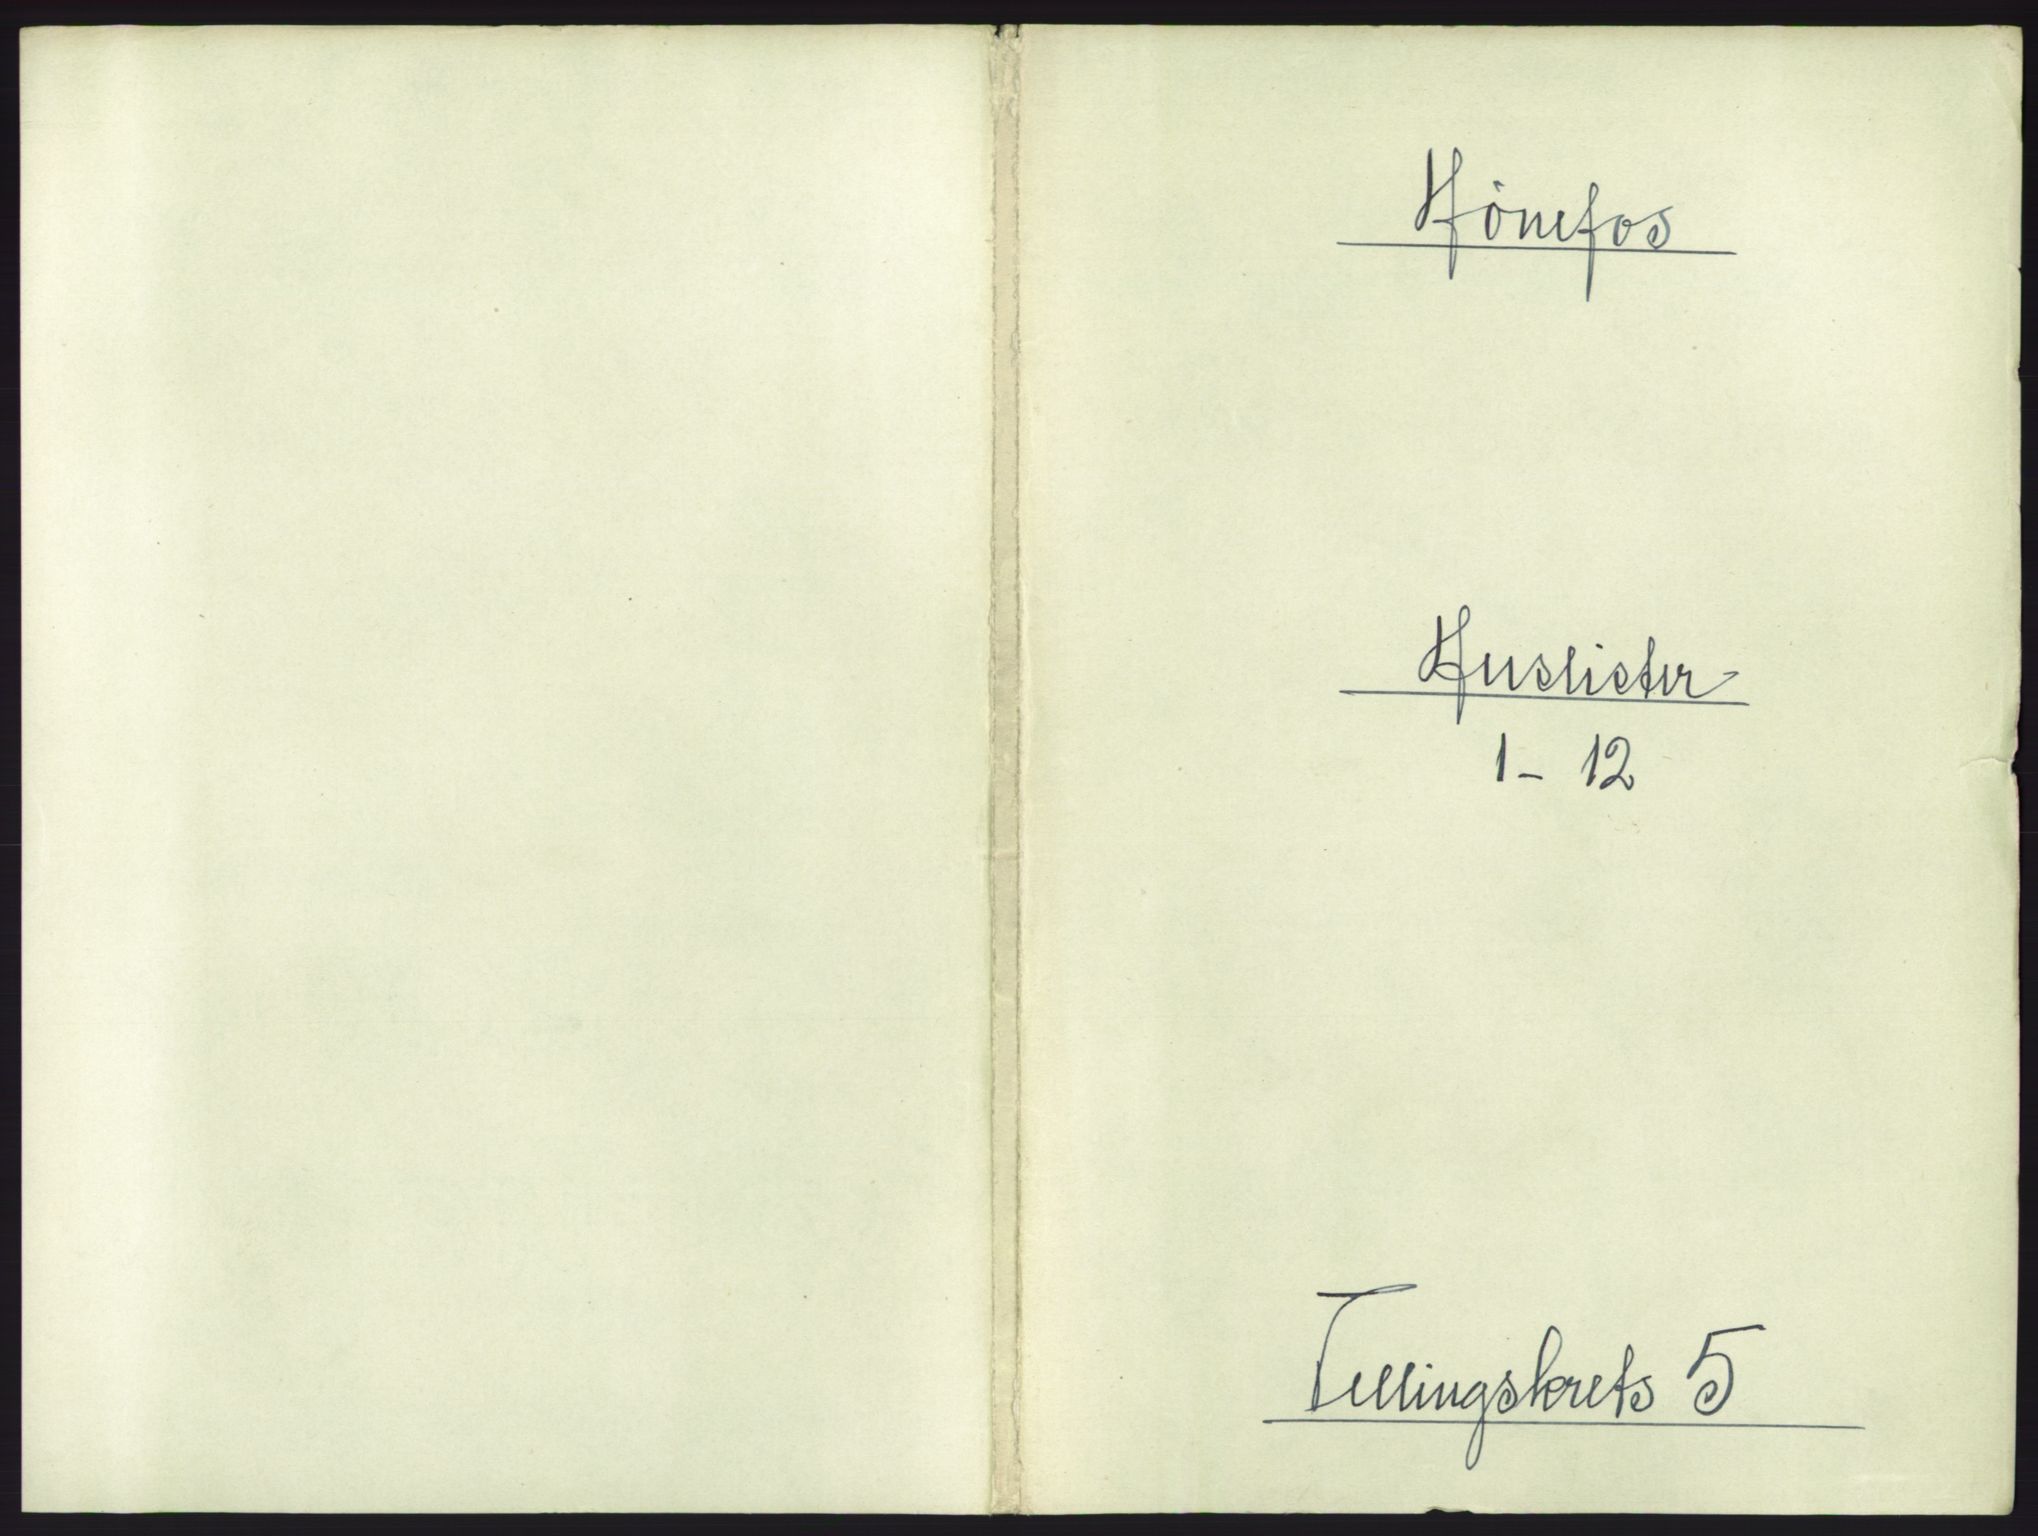 Hönefos
Huslister
1 - 12
Tellingskrets 5